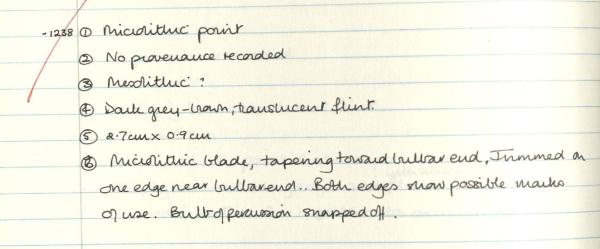 -1238 ① Microlithic point
② No provenance recorded
③ Mesolithic ?
④ Dark grey-brown, translucent flint.
⑤ 2.7cm x 0.9cm
⑥ Microlithic blade, tapering toward bulbar end, Trimmed on
one edge near bulbar end.. Both edges show possible marks
of use. Bulb of percussion snapped off.